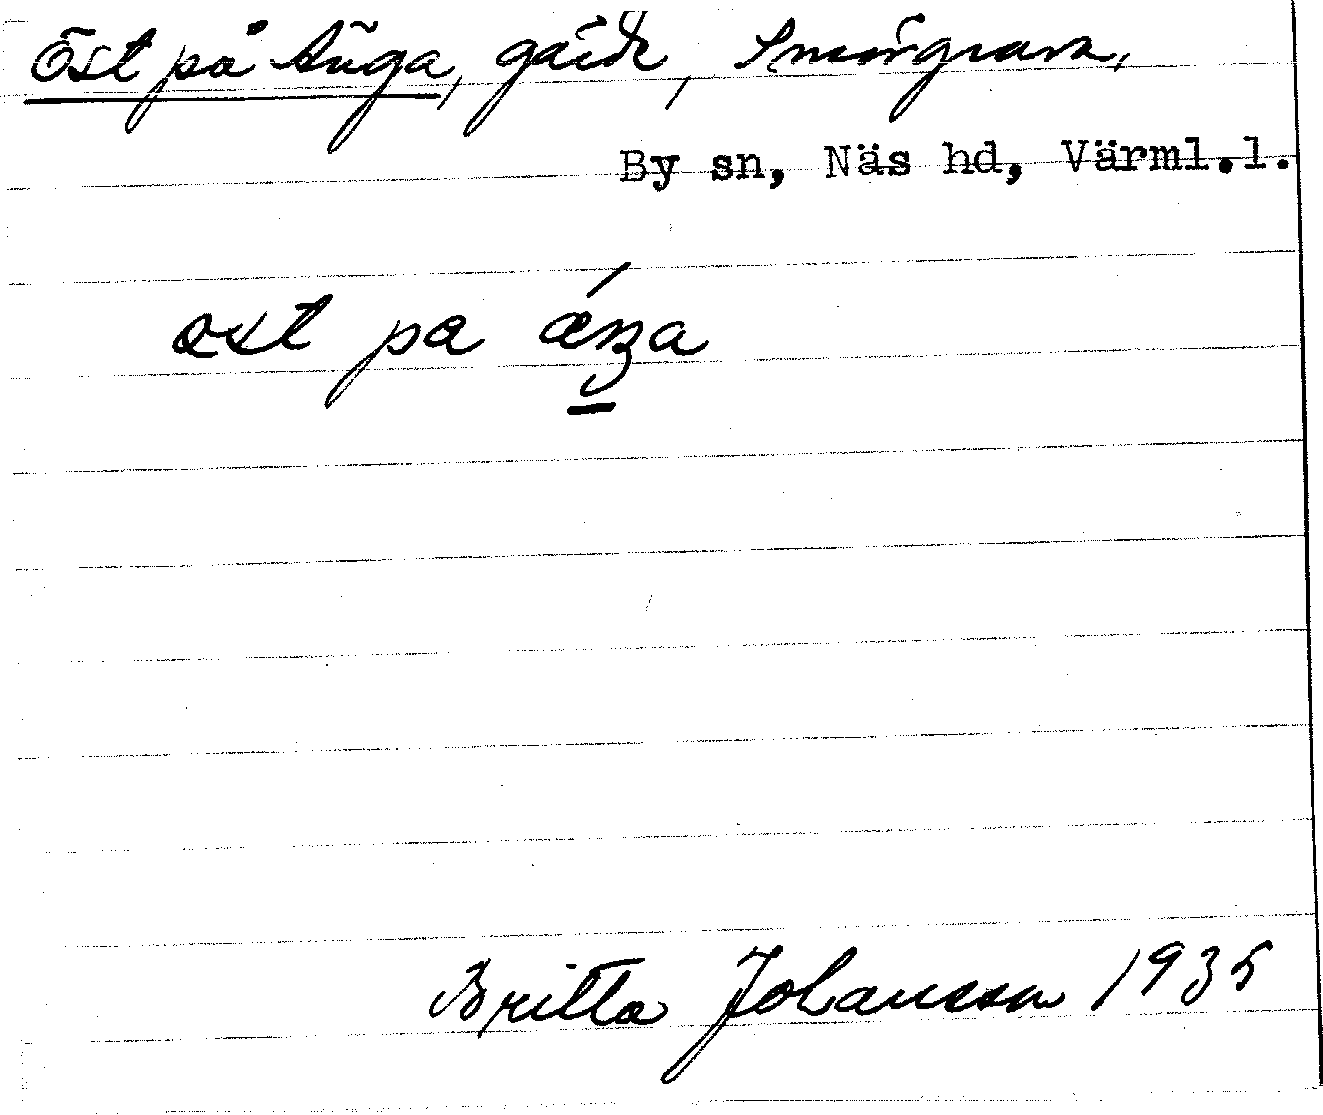 Öst på Änga, gärde, Smörgrava,
By sn, Näs hd, Värml.l.
ost pa
Britta Johansson 1935